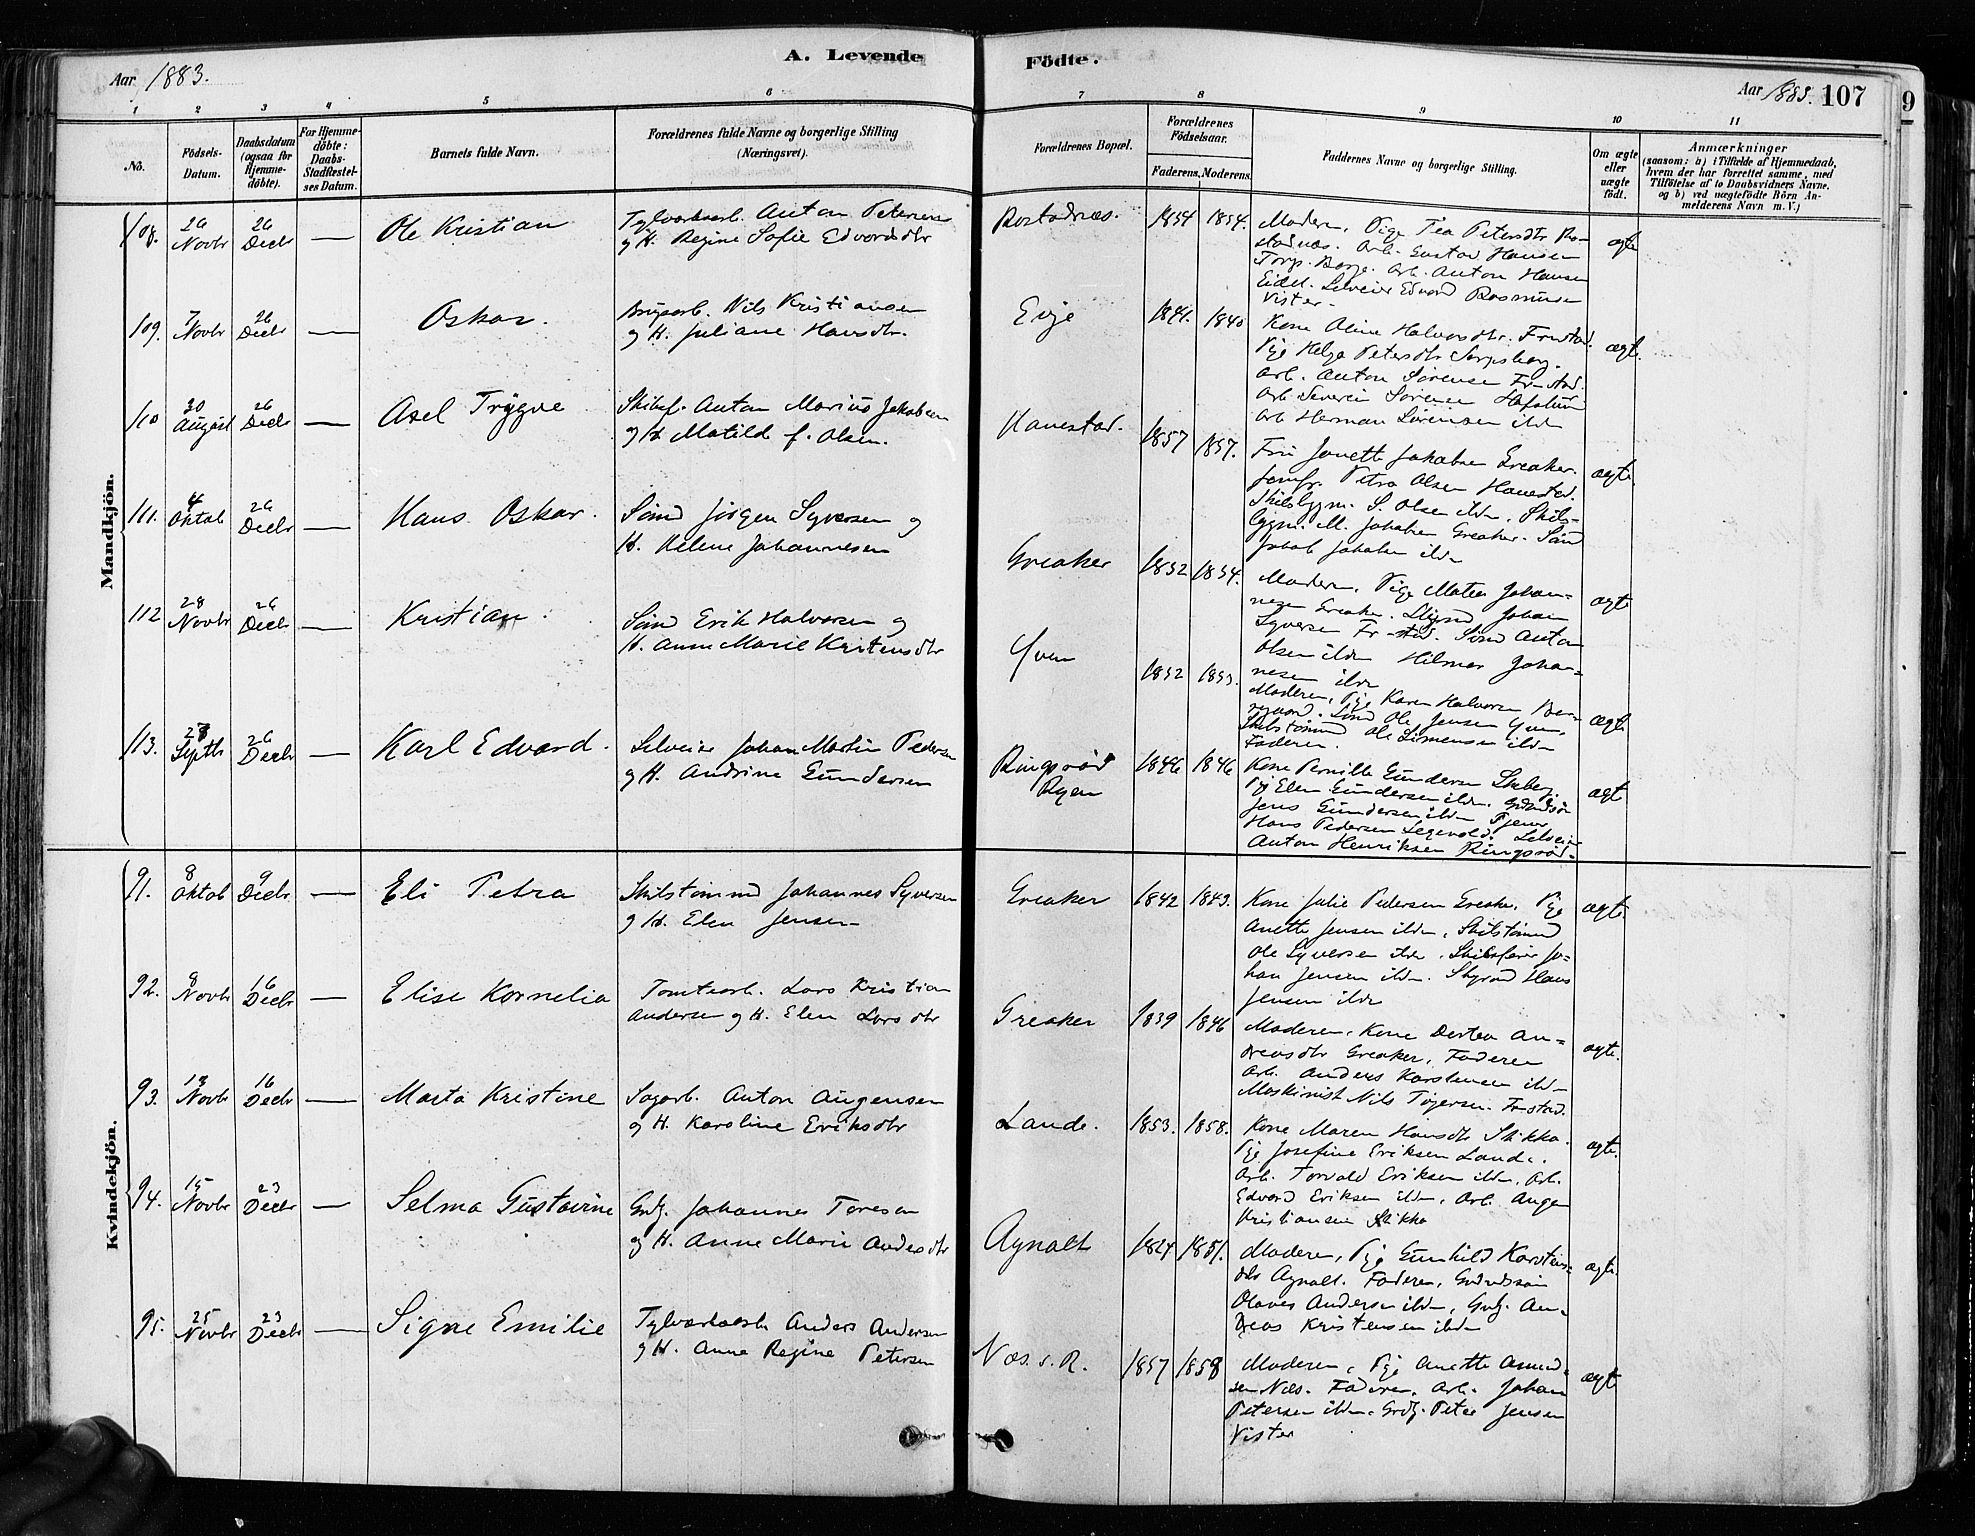 A. Levende
Födte.
Aar 1883.
Aar 1883. 107
9
1 2 3 4 5 6 7 8 9 10 11
No.
Födsels-
Datum.
Daabsdatum
(ogsaa for
Hjemme-
döbte).
For Hjemme-
döbte:
Daabs-
Stadfæstel-
ses Datum.
Barnets fulde Navn.
Forældrenes fulde Navne og borgerlige Stilling
(Næringsvei).
Forældrenes Bopæl.
Forældrenes
Födselsaar.
Faderens. Moderens.
Faddernes Navne og borgerlige Stilling.
Om ægte
eller
uægte
födt.
Anmærkninger
(saasom: a) i Tilfælde af Hjemmedaab,
hvem der har forrettet samme, med
Tilföielse af to Daabsvidners Navne,
og b) ved uægtefödte Börn An-
melderens Navn m. V.)
Mandkjön.
108. 26 Novbr 26 Decbr — Ole Kristian
Anton Petersen
og H. Regine Sofie Edvardsdtr
1854 1854.
Moderen, Pige Tea Petersdtr
Arb. Gustav Hansen
Torp. Borge. Arb. Anton Hansen
Selveier Edvard Rasmussen
Vister.
ægte
109. 7 Novbr 26 Decbr — Oskar.
Nils Kristiansen
og H. Juliane Hansdtr.
Evje 1841. 1840
Kone Aline Halvorsdtr. Fr.stad.
Pige Helga Petersdtr Sarpsborg.
Arb. Anton Sørensen Fr-stad.
Arb Severin Sørensen Hafslund
Arb Herman Sørensen ibdm
ægte.
110 30 August 26 Decbr — Axel Trygve
Skibsf. Anton Marius Jakobsen
og H. Matilde f. Olsen.
Hanestad. 1857 1857.
Fru Janette Jakobsen Greaker.
Jomfr. Petra Olsen Hanestad.
Skibsbygm. S. Olsen ibdm, Skibs-
bygm. M. Jakobsen Greaker. Sømd
Jakob Jakobsen ibdm
ægte.
111. 4 Oktob 26 Decbr — Hans Oskar.
Sømd Jørgen Syversen og
H. Helene Johannesen
Greaker 1852 1854.
Moderen, Pige Matea Johan-
nesen Greaker. Johan
Syversen Fr-stad. Sømd Anton
Olsen ibdm Hilmar Johan-
nesen ibdm
ægte
112 28 Novbr 26 Decbr — Kristian.
Sømd Erik Halvorsen og
H. Anne Marie Kristensdtr
Yven 1852 1853.
Moderen, Pige Karen Halvorsen
Sømd Ole Jensen Yven,
Skibstømmd Ole Simensen ibdm
Faderen.
ægte
113. 28 Septbr 26 Decbr — Karl Edvard.
Selveier Johan Martin Pedersen
og H. Andrine Gundersen
Ringsrød
Ryen 1846 1846
Kone Pernille Gundersen Skeberg.
Pige Elen Gundersen ibdm. Grdmdsøn
Jens Gundersen ibdm Tjener
Hans Pedersen Selveier
Anton Henriksen Ringsrød.
ægte
Kvindekjön.
91. 8 Oktob 9 Decbr — Eli Petra
Skibstømmd Johannes Syversen
og H. Elen Jensen
Greaker 1842 1843.
Kone Julie Pedersen Greaker, Pige
Anette Jensen ibdm, Skibstømmd
Ole Syversen ibdm. Skibsfører Jo-
han Jensen ibdm. Styrmd Hans
Jensen ibdm
ægte.
92. 8 Novbr 16 Decbr — Elise Kornelia
Tomtearb. Lars Kristian
Andersen og H. Elen Larsdtr
Greaker 1839 1846
Moderen, Kone Dortea An-
dreasdtr Greaker, Faderen
Arb. Anders Karstensen ibdm
Maskinist Nils Tøgersen. Fr-stad.
ægte.
93. 18 Novbr 16 Decbr — Marta Kristine
Sagarb. Anton Augensen
og H. Karoline Eriksdtr
Lande. 1853. 1858.
Kone Maren Hansdtr Stikka.
Pige Josefine Eriksen Lande.
Arb. Torvald Eriksen ibdm, Arb.
Edvard Eriksen ibdm, Arb. Augen
Kristiansen Stikka
ægte.
94. 15 Novbr 23 Decbr — Selma Gustavine
Grdb. Johannes Toresen
og H. Anne Marie Andersdtr
Agnalt 1824 1851.
Moderen, Pige Gunhild Karstens-
dtr Agnalt. Faderen, Grdmdsøn
Olaves Andersen ibdm, Grdb. An-
dreas Kristensen ibdm
ægte.
95. 25 Novbr 23 Decbr — Signe Emilie
Anders Andersen
og H. Anne Regine Petersen
Næs. s. R. 1857 1858
Moderen, Pige Anette Amund-
sen Næs. Faderen, Arb. Johan
Petersen ibdm. Grdb. Peter Jensen
Vister
ægte